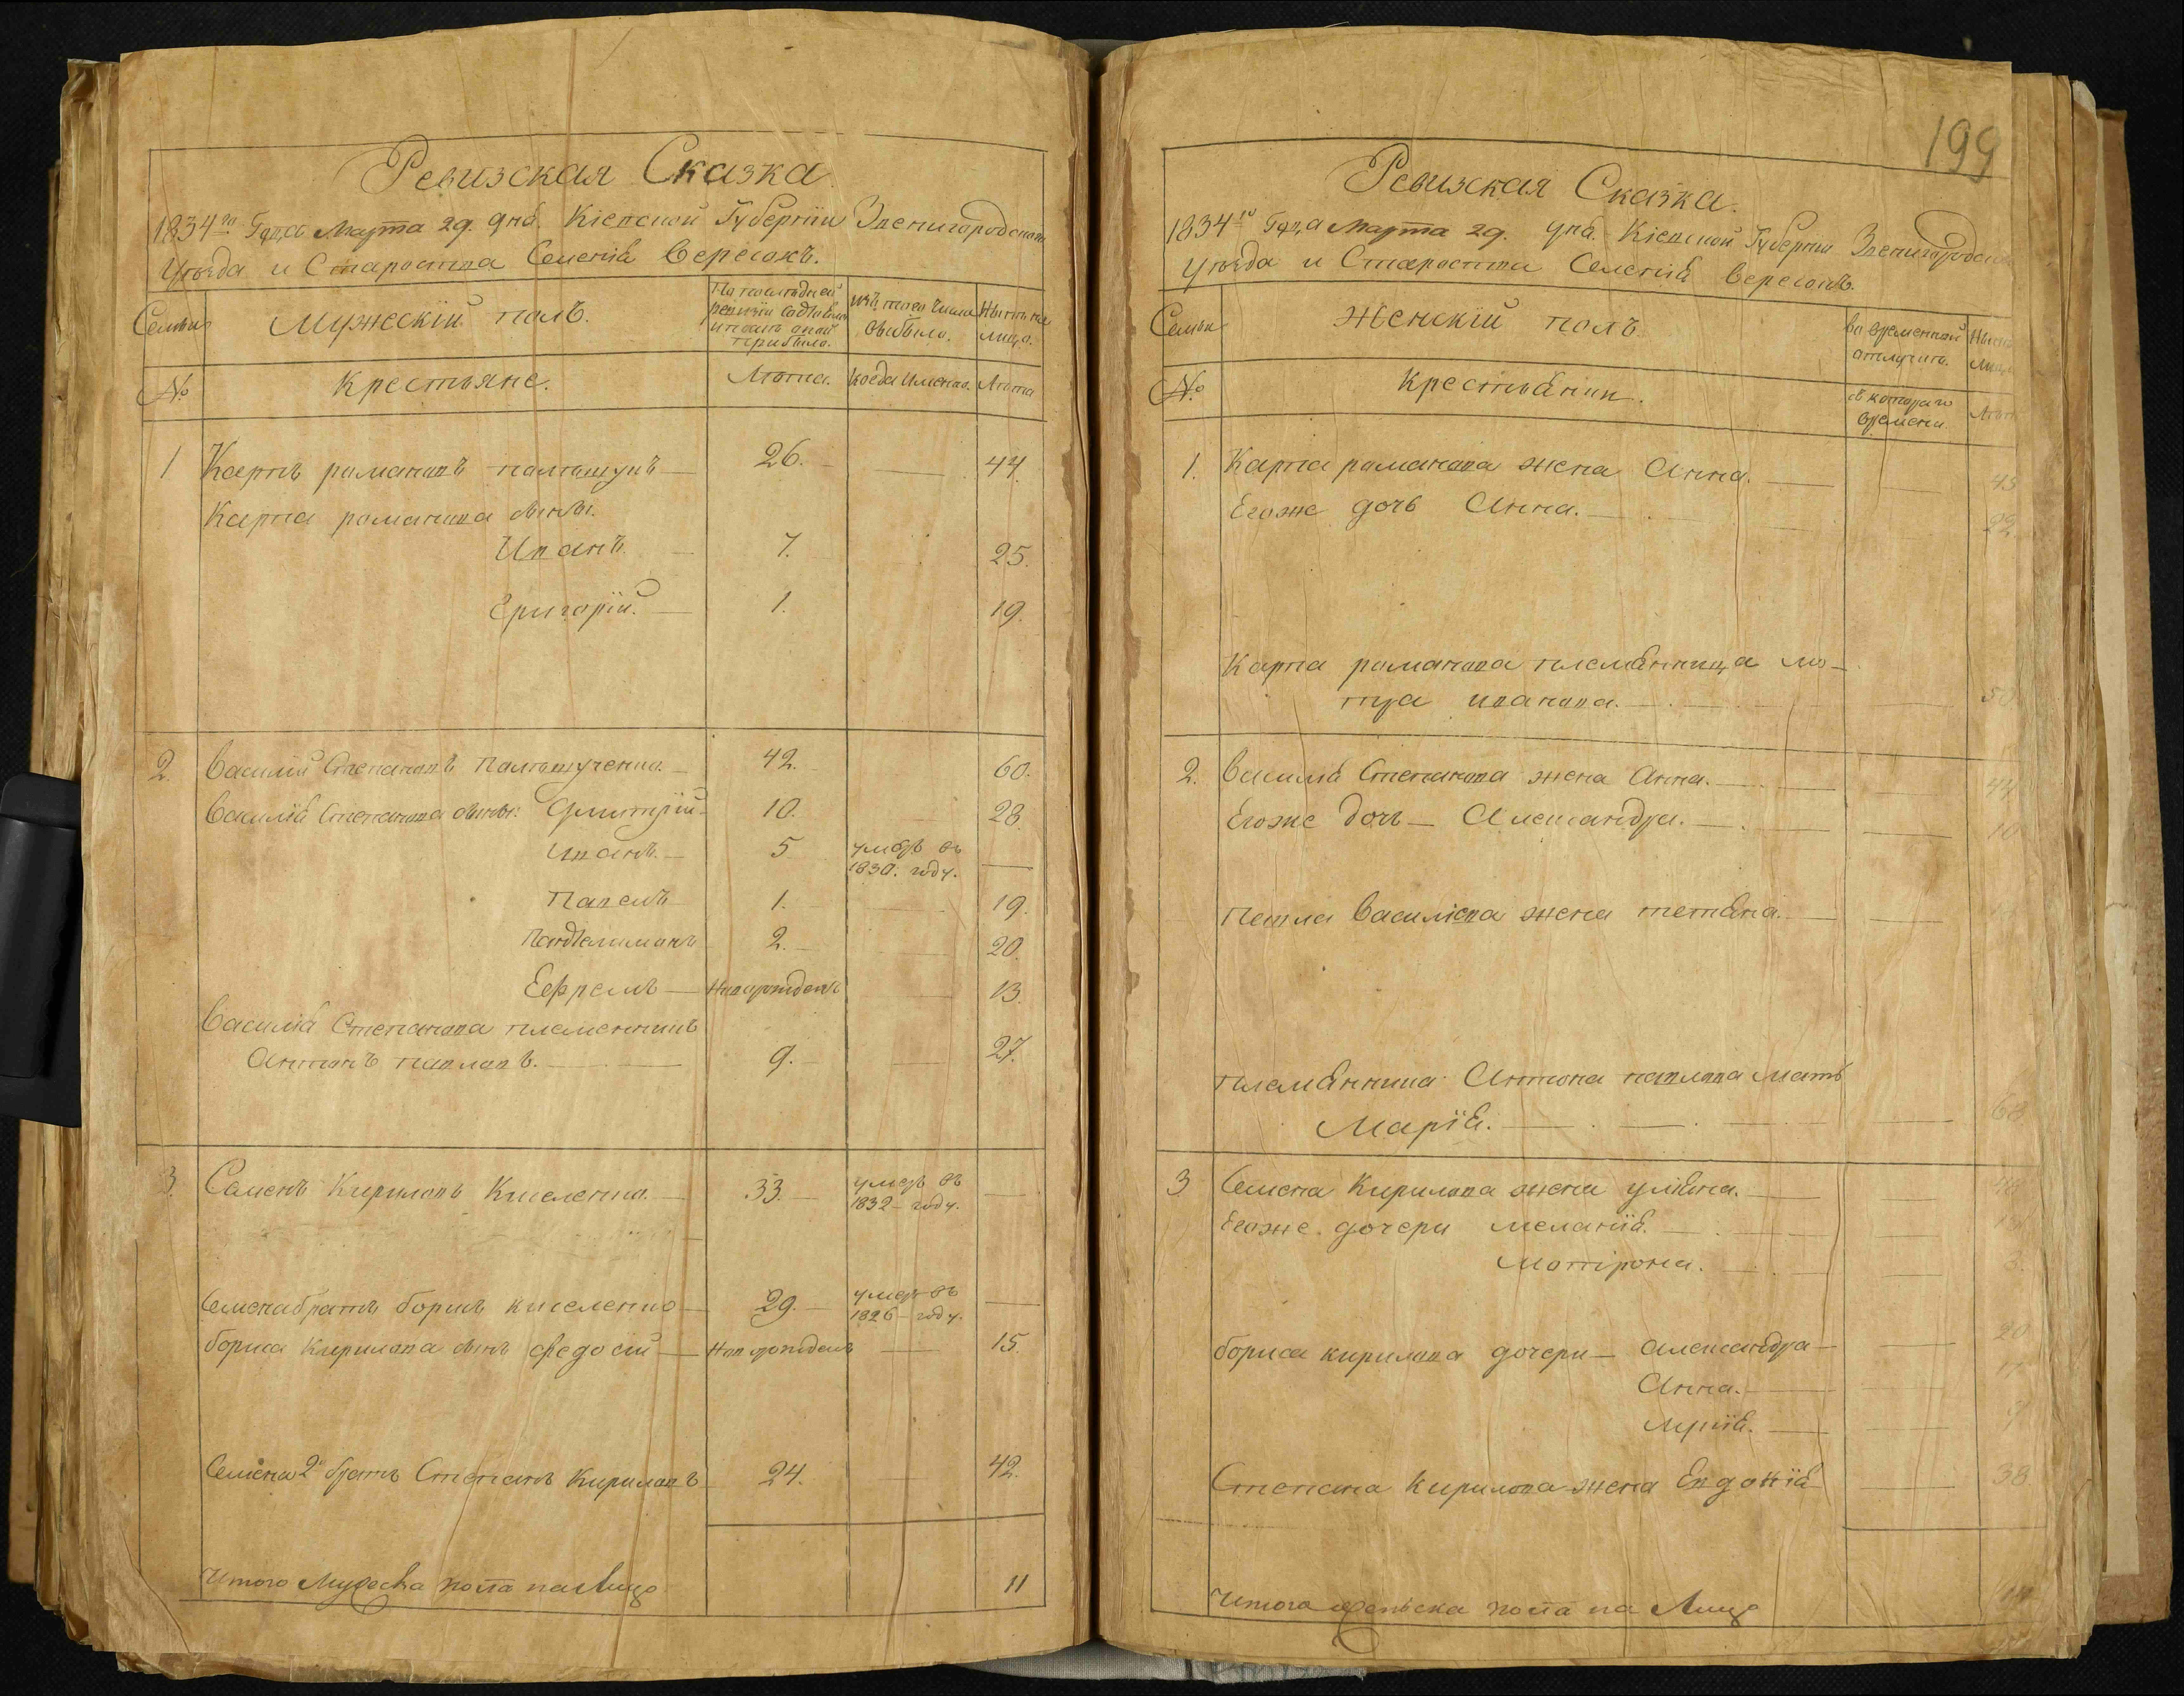 Ревизская Сказка.
1834го Года Марта 29. дня. Кіевской Губерніи Звенигородскаго
Уѣзда и Староства Селенія Вересокъ.
Семьи
Мужескій полъ.
По последней ревизіи состояло и после оной прибыло.
изъ того числа выбыло.
Ныне на лицо.
№
Крестьяне.
Лѣта.
Когда именно.
Лѣта
1 Карпъ романовъ 26. 44.
Карпа романова сыны.
Иванъ. 7. 25.
Григорій. 1. 19.
2. Василій Степановъ 42. 60.
Василія Степанова сыны: Дмитрій 10. 28.
Иванъ. 5 умеръ въ
1830. году.
Павелъ 1. 19.
Пантелимонъ 2. 20.
Ефремъ Новорожденъ 13.
Василія Степанова племенникъ
Антонъ павловъ. 9. 27.
3. Семенъ Кириловъ Киселенко. 33. умеръ въ
1832 году.
Семена братъ борисъ киселенко 29. умеръ въ
1826 году.
бориса Кирилова сынъ федосій Новорожденъ 15.
Семена 2й братъ Степанъ Кириловъ 24. 42.
Итого Мужеска пола на Лицо 11
199
Ревизская Сказка.
1834го Года Марта 29. дня. Кіевской Губерніи Звенигородска
Уѣзда и Староства Селенія Вересокъ.
Семьи
Женскій полъ
во временной отлучкѣ.
Ныне
Лиц
№.
Крестьянки.
съ котораго времени
Лѣта
1. Карпа романова жена Анна. 43
Егоже дочь Анна. 22.
Карпа романова племянница мо-
тра иванова. 50
2. Василія Степанова жена Анна. 44
Егоже дочь Александра. 10
Павла Василіева жена тетяна.
племянника Антона павлова мать
Марія. 68
3 Семена Кирилова жена уляна.
Егоже дочери меланія.
мотрона. 3.
бориса кирилова дочери Александра 20
Анна.
Марія.
Степана Кирилова жена Евдокія 38
Итого женска пола на Лицо